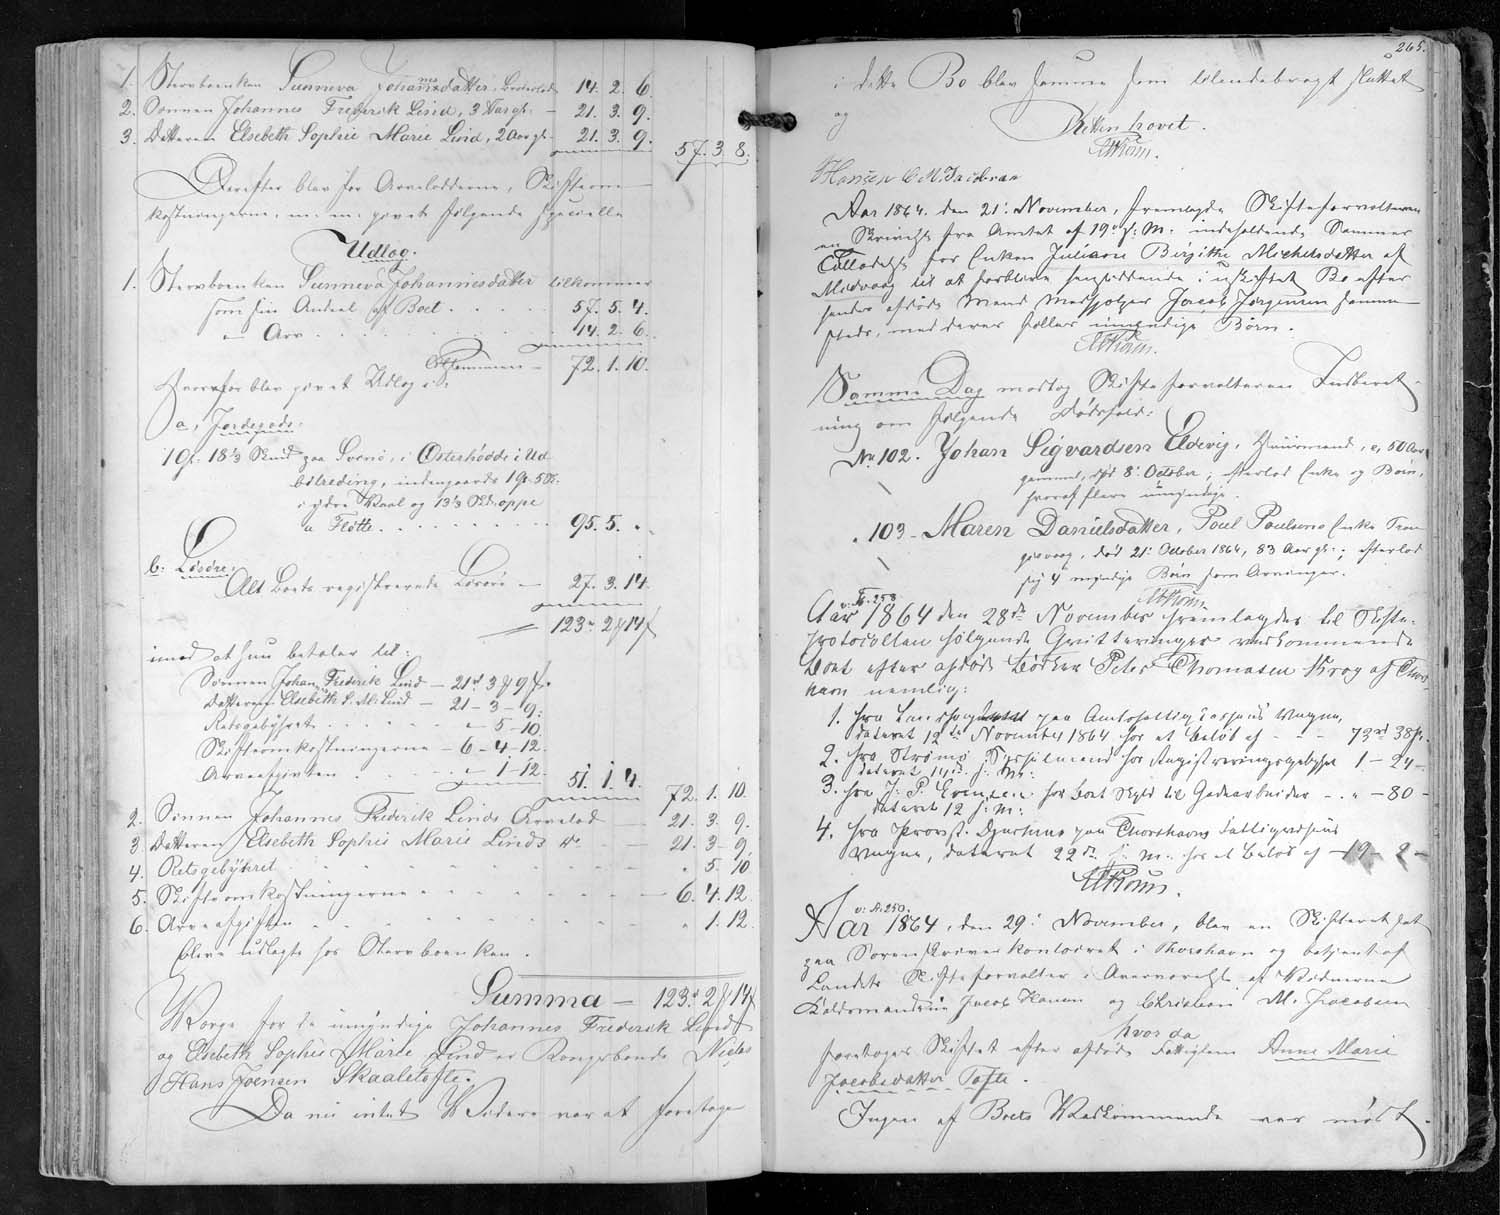 1. Stervboenken Sunneva Johannesdatter, Broderlod 14. 2. 6.
2. Sønnen Johannes Frederik Lind, 3 Aar gl: — 21. 3. 9.
3. Datteren Elsebeth Sophie Marie Lind, 2 Aar gl. — 21. 3. 9.
57. 3. 8.
Derefter blev for Arvelodderne, Skifteom-
kostningerne, m. m. givet følgende specielle
Udlog.
1. Stervboenken Sunneva Johannesdatter tilkommer
som sin Andeel af Boet . . . . . 57. 5. 4.
— Arv . . . . . 14. 2. 6.
Tilsammen — 72. 1. 10.
Hvorfor blev givet Udlog i:
a, Jordegods:
1 Gl. 18⅓ Skind paa Svinø, i Østerhødde i Ud
95. 5. "
b: Løsøre:
Alt Boets registrerede Løsøre — 27. 3. 14.
123ʳ 2 ₰ 14 ₰
imod at hun betaler til:
Sønnen Johan Frederik Lind — 21ʳ 3 ₰ 9 ₰.
Datteren Elsebeth S. M. Lind — 21 — 3 — 9.
Retsgebyhret . . . . . " — 5 — 10.
Skifteomkostningerne — 6 — 4 — 12.
Arveafgivten . . . . " — 1 — 12. 51. 1. 4.
72. 1. 10.
2. Sønnen Johannes Frederik Linds Arvelod — 21. 3. 9.
3. Datteren Elsebeth Sophie Marie Linds do — 21. 3 — 9.
4. Retsgebyhret " 5. 10
5. Skifteomkostningerne — 6. 4. 12.
6. Arveafgiften " 1. 12.
blive udlagte hos Stervboenken.
Summa — 123ʳ 2 ₰ 14 ₰
Værge for de umyndige Johannes Frederik Lind
og Elsebeth Sophie Marie Lind er Kongsbonde Niels
Hans Joensen Skaaletofte.
Da nu intet Videre var at foretage
265.
i dette Bo blev samme som tilendebragt sluttet
og
Retten hævet.
Hansen C. M. Jacobsen
Aar 1864. den 21: November, fremlagde Skifteforvalteren
en Skrivelse fra Amtet af 19de d: M: indeholdende Sammes
Tilladelse for Enken Juliane Birgithe Michelsdatter af
Midvaag til at forblive hensiddende i uskiftet Bo efter
hendes afdøde Mand Jacob Jørgensen samme-
steds, med deres fælles umyndige Børn.
Samme Dag modtog Skifteforvalteren Indberet-
ning om følgende Dødsfald:
No 102. Johan Sigvardsen Eldevig, Huusmand, c, 50 Aar
gammel, død 8: October; efterlod Enke og Børn,
hvoraf flere umyndige.
" 103 — Maren Danielsdatter, Poul Poulsens Enke Tran-
gisvaag, død 21: October 1864, 83 Aar gl:; efterlod
sig 4 myndige Børn som Arvinger.
v: F. 258
Aar 1864 den 28de November fremlagdes til Skifte-
protocollen følgende Qvitteringer vedkommende
Boet efter afdøde Bødker Peter Thomasen Krog af Thors-
havn nemlig:
1. fra Landfogden paa Amtsfattigcassens Vegne,
dateret 12te November 1864 for et Beløb af — — 73rd 38 s.
2. fra Strømø Sysselmand for Registreringsgebyhr 1 — 24 —
dateret 14de d: M:
3. fra J. P. for Boet Skyld til Gadearbeider — . " — 80 —
dateret 12 d: M:
4. fra Provst Djurhuus paa Thorshavns Fattigvæsens
Vegne, dateret 22de d: M: for et Beløb af — 19 — 2 —
v: F. 250.
Aar 1864, den 29: November, blev en Skifteret sat
paa Sorenskriverkontoiret i Thorshavn og betjent af
Landets Skifteforvalter i Overværelse af Vidnerne
Koldsmændene Jacob Hansen og Christian M. Jacobsen
hvor da
foretoges Skiftet efter afdøde Fattiglem Anne Marie
Jacobsdatter Tofte.
Ingen af Boets Vedkommende var mødt.